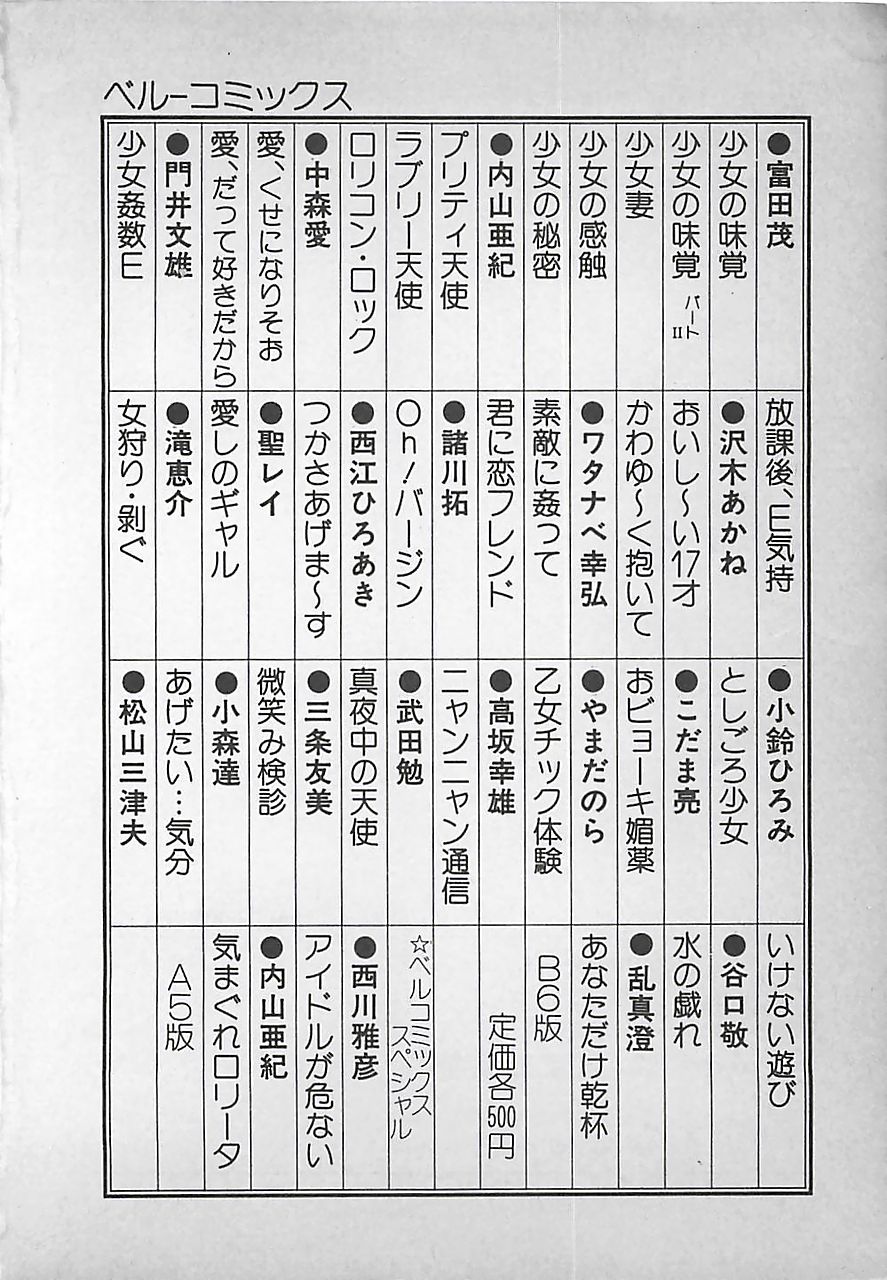 ベル−コミックス
●富田茂
少女の味覚
少女の味覚 パートII
少女妻
少女の感触
少女の秘密
●内山亜紀
プリティ天使
ラブリー天使
ロリコン・ロック
●中森愛
愛、くせになりそお
愛、だって好きだから
●門井文雄
少女姦数E
放課後、E気持
●沢木あかね
おいし〜い17才
かわゆ〜く抱いて
●ワタナベ幸弘
素敵に姦って
君に恋フレンド
●諸川拓
Oh!バージン
●西江ひろあき
つかさあげま〜す
●聖レイ
愛しのギャル
●滝恵介
女狩り・剝ぐ
●小鈴ひろみ
としごろ少女
●こだま亮
おビョーキ媚薬
●やまだのら
乙女チック体験
●高坂幸雄
ニャンニャン通信
●武田勉
真夜中の天使
●三条友美
微笑み検診
●小森達
あげたい…気分
●松山三津夫
いけない遊び
●谷口敬
水の戯れ
●乱真澄
あなただけ乾杯
B6版
定価各500円
☆ベルコミックス
スペシャル
●西川雅彦
アイドルが危ない
●内山亜紀
気まぐれロリータ
A5版